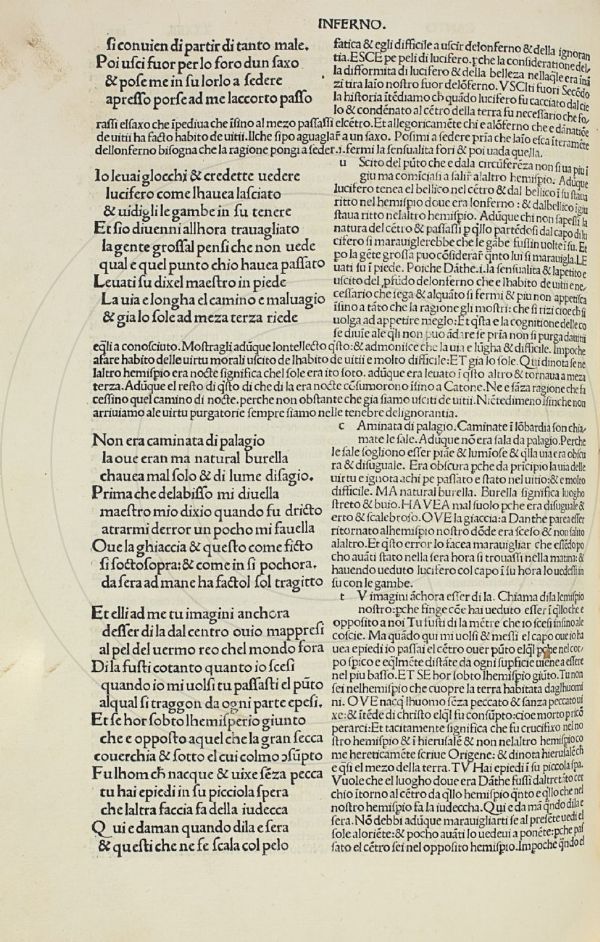 INFERNO.
ſi conuien di partir di tanto male.
Poi uſci fuor per lo foro dun ſaxo
& poſe me in ſu lorlo a ſedere
apreſſo porſe ad me laccorto paſſo
fatica & egli difficile a uſcir delonferno & della ignoran
tia. ESCE pe peli di lucifero. ꝑche la conſideratione del
la difformita di lucifero & della belleza
zi tira laio noſtro fuor delõferno. VSCIti fuori Secõdo
la hiſtoria ĩtẽdiamo ch quãdo lucifero fu cacciato dal cie
lo & condẽnato al cẽtro della terra fu neceſſario che fo
raſſi elſaxo che ĩpediua che iſino al mezo paſſaſſi elcẽtro. Et allegoricamẽte chi e alõferno che e dãnatiõe
de uitii ha facto habito de uitii. Ilche ſipo aguaglar a un ſaxo. Poſimi a ſedere pria che laio eſca iteramẽte
dellonferno biſogna che la ragione pongi a ſeder. i. fermi la ſenſualita ſori & poi uada quella.
Io leuai glocchi & credette uedere
lucifero come lhauea laſciato
& uidigli le gambe in ſu tenere
Et ſio diuenni allhora trauagliato
la gente groſſal penſi che non uede
qual e quel punto chio hauea paſſato
Leuati ſu dixel maeſtro in piede
La uia e longha el camino e maluagio
& gia lo ſole ad meza terza riede
u Scito del pũto che e dala circũferẽza non ſi ua piu ĩ
giu ma comĩciaſi a ſalir alaltro hemiſpio. Adũque
lucifero tenea el bellico nel cẽtro & dal bellico ĩ ſu ſtaua
ritto nel hemiſpio doue era lonferno: & dalbellico ĩ giu
ſtaua ritto nelaltro hemiſpio. Adũque chi non ſapeſſi la
natura del cẽtro & paſſaſſi ꝑ qllo partẽdoſi dal capo di lu
cifero ſi marauiglerebbe che le gãbe fuſſin uolte ĩ ſu. Et
po la gẽte groſſa puo cõſiderar qnto lui ſi marauigla. LE
uati ſu ĩ piede. Poiche Dãthe. i. la ſenſualita & lapetito e
uſcito del ꝓfũdo delonferno che e lhabito de uitii e ne
ceſſario che ſega & alquãto ſi fermi & piu non apetiſca
iſino a tãto che la ragione gli moſtri: che ſi rizi cioe ch ſi
uolga ad appetire meglo: Et qſta e la cognitione delle co
ſe diuie ale qli non puo ãdare ſe pria non ſi purga da uitii
eqli a conoſciuto. Moſtragli adũque lontellecto qſto: & admoniſce che la ui e lũgha & difficile. Impoche
afare habito delle uirtu morali uſcito de lhabito de uitii e molto difficile: ET gia lo ſole. Qui dinota ſe ne
laltro hemiſpio era nocte ſignifica chel ſole era ito ſoto. adũque era leuato ĩ qſto altro & tornaua a meza
terza. Adũque el reſto di qſto di che di la era nocte cõſumorono iſino a Catone. Ne e ſãza ragione che fa
ceſſino quel camino di nocte. perche non obſtante che gia ſiamo uſciti de uitii. Niẽtedimeno iſinche non
arriuiamo ale uirtu purgatorie ſempre ſiamo nelle tenebre delignorantia.
Non era caminata di palagio
la oue eran ma natural burella
chauea mal ſolo & di lume diſagio.
Prima che delabiſſo mi diuella
maeſtro mio dixio quando fu dricto
atrarmi derror un pocho mi fauella
Oue la ghiaccia & queſto come ficto
ſi ſoctoſopra: & come in ſi pochora.
da ſera ad mane ha factol ſol tragitto
c Aminata di palagio. Caminate ĩ lõbardia ſon chia
mate le ſale. Adũque nõn era ſala da palagio. Perche
le ſale ſogliono eſſer piãe & lumioſe & qlla uia era obſcu
ra & diſuguale. Era obſcura ꝑche da pricipio la uia delle
uirtu e ignora achi pe paſſato e ſtato nel uitio: & e molto
difficile. MA natural burella. Burella ſignifica luogho
ſtreto & buio. HAVEA mal ſuolo ꝑche era diſuguale &
erto & ſcalebroſo. OVE la giaccia: a Danthe parea eſſer
ritornato alhemiſpio noſtro dõde era ſceſo & non ſalito
alaltro. Et qſto error lo facea marauigliar che eſſẽdo po
cho auãti ſtato nella ſera hora ſi trouaſſi nella matina: &
hauendo ueduto lucifero col capo ĩ ſu hora lo uedeſſi in
ſu con le gambe.
Et elli ad me tu imagini anchora
deſſer di la dal centro ouio mappreſi
al pel del uermo reo chel mondo fora
Di la fuſti cotanto quanto io ſceſi
quando io mi uolſi tu paſſaſti el pũto
alqual ſi traggon da ogni parte epeſi.
Et ſe hor ſobto lhemiſperio giunto
che e oppoſito aquel che la gran ſecca
couerchia & ſotto el cui colmo oſũpto
Fu lhom ch̃ nacque & uixe ſẽza pecca
tu hai epiedi in ſu picciola ſpera
che laltra faccia fa della iudecca
Qui e da man quando di la e ſera
& queſti che ne fe ſcala col pelo
t V imagini ãchora eſſer di la. Chiama di la lemiſpio
noſtro: ꝑche finge cõe hai ueduto eſſer ĩ qllo che e
oppoſito a noi Tu fuſti di la mẽtre che io ſceſi inſino ale
coſcie. Ma quãdo qui mi uolſi & meſſi el capo oue io ha
uea epiedi io paſſai el cẽtro ouer pũto elql ꝑche nel cor
po ſpico e eqlmẽte diſtãte da ogni ſupficie uiene a eſſere
nel piu baſſo. ET SE hor ſobto lhemiſpio giũto. Tu non
ſei nelhemiſpio che cuopre la terra habitata daglhuomi
ni. OVE nacq lhuomo ſẽza peccato & ſanza peccato ui
xe: & ĩtẽde di chriſto elql fu conſũpto: cioe morto
perarci: Et tacitamente ſignifica che fu crucifixo nel no
ſtro hemiſpio & ĩ hieruſale & non nel altro hemiſpio co
me hereticamẽte ſcriue Origene: & dinota hieruſale ch
e qſi el mezo della terra. TV Hai epiedi ĩ ſu picciola ſpa.
Vuole che el luogho doue era Dãthe fuſſi dal tretãto cer
chio ĩtorno al cẽtro da qllo hemiſpio qnto e qllo che nel
noſtro hemiſpio fa la iudeccha. Qui e da mã qñdo di la e
ſera. Nõ debbi adũque marauigliarti ſe al preſẽte uedi el
ſole aloriẽte: & pocho auãti lo uedeui a ponẽte: ꝑche paſ
ſato el cẽtro ſei nel oppoſito hemiſpio. Impoche qñdo el